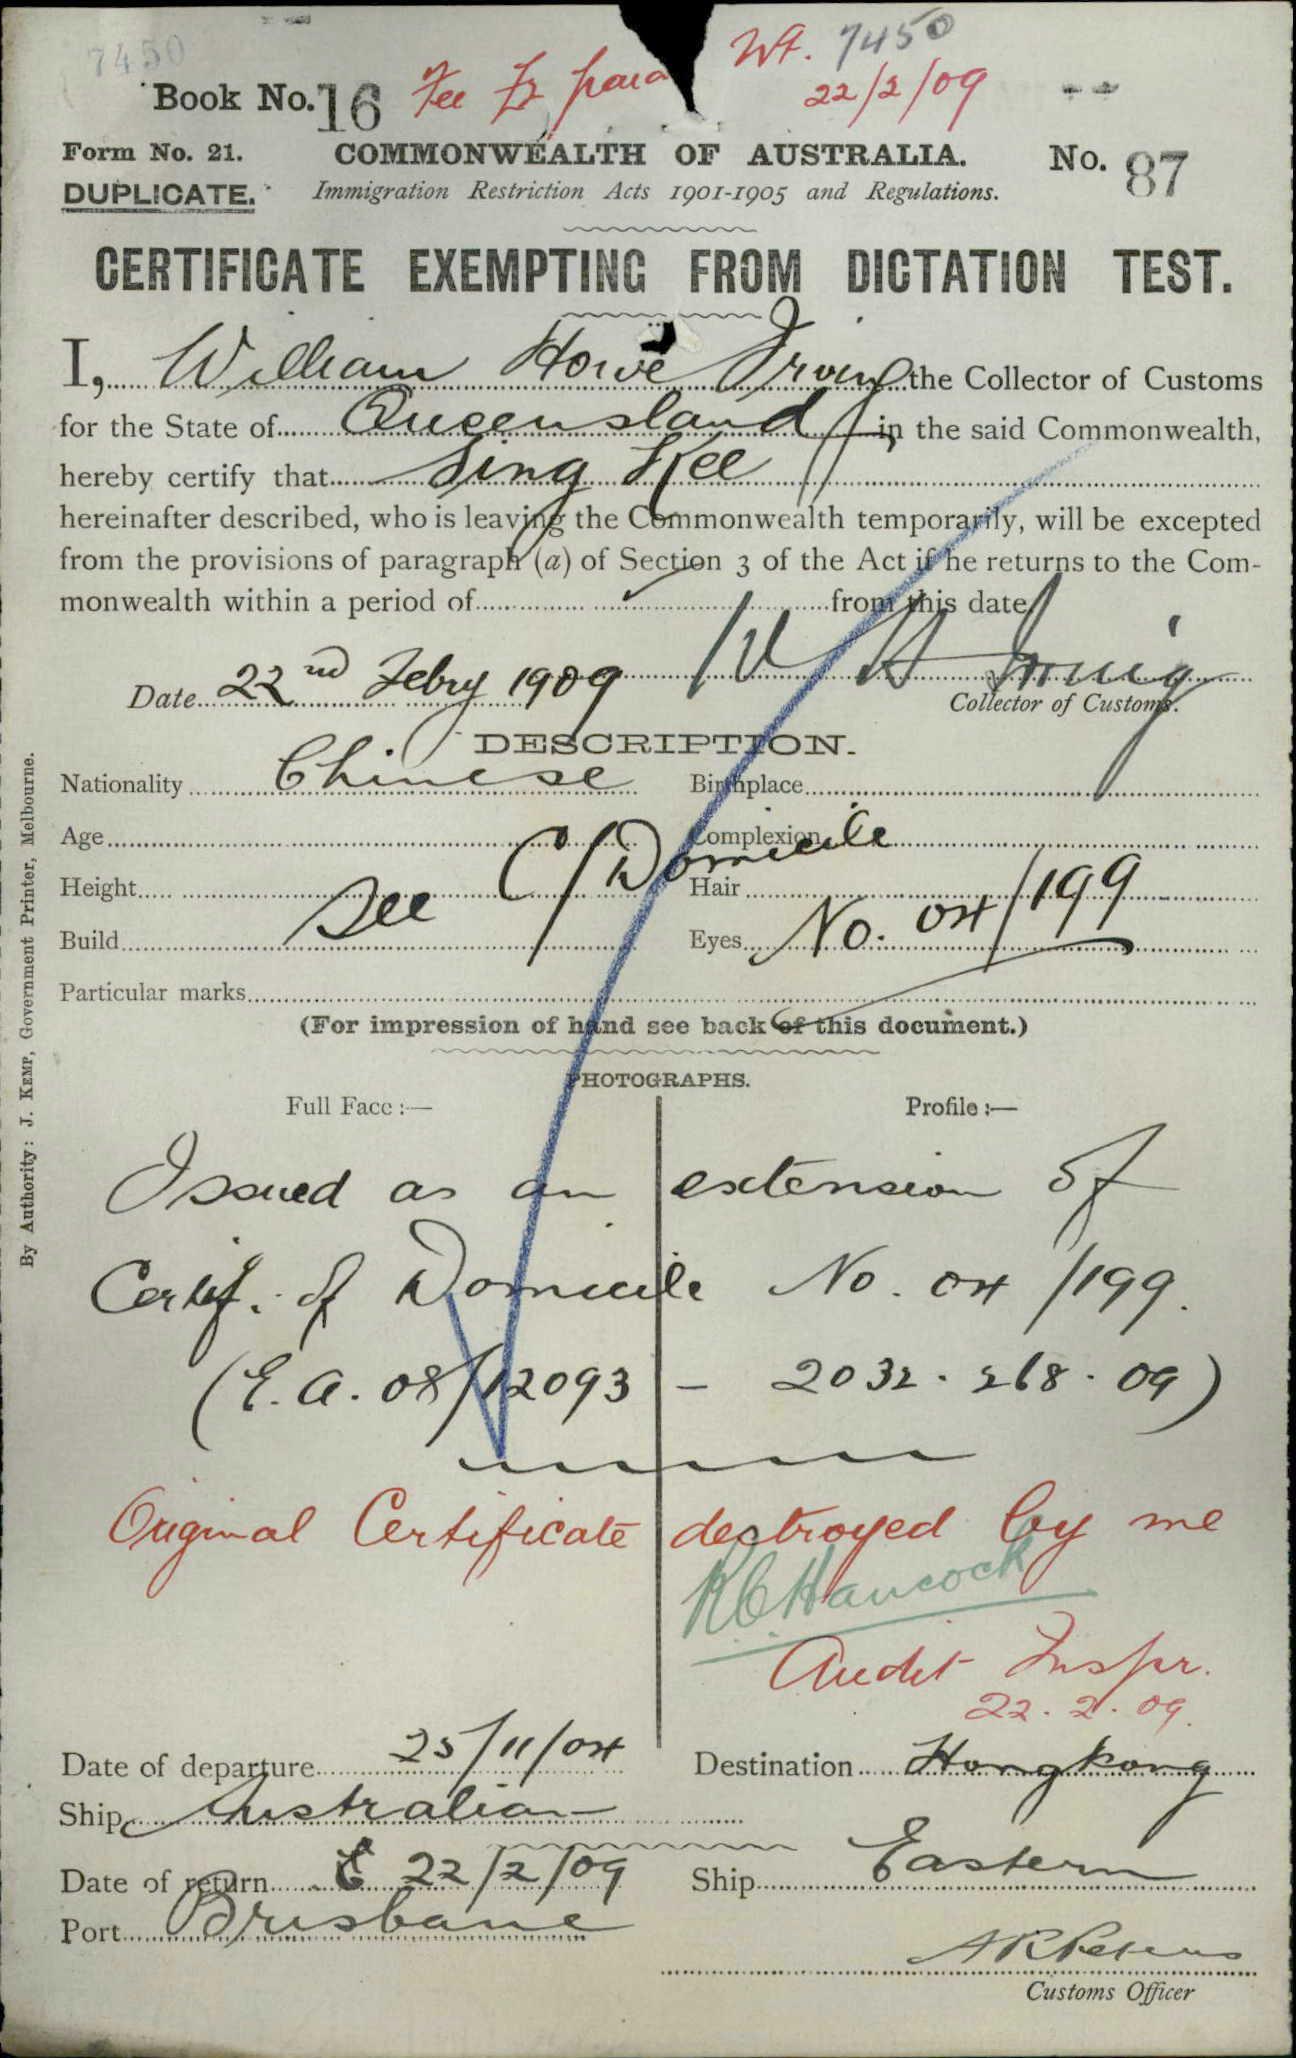 7450
Wt. 7450
Book No. 16 Fee £1 paid 22/2/09
Form No. 21. COMMONWEALTH OF AUSTRALIA. No. 87
DUPLICATE. Immigration Restriction Acts 1901-1905 and Regulations.
CERTIFICATE EXEMPTING FROM DICTATION TEST.
I, William Howe Irving the Collector of Customs
for the State of Queensland in the said Commonwealth,
hereby certify that Sing Kee
hereinafter described, who is leaving the Commonwealth temporarily, will be excepted
from the provisions of paragraph (a) of Section 3 of the Act if he returns to the Com-
monwealth within a period of from this date.
W H Irving
Date 22nd Febry 1909
Collector of Customs.
DESCRIPTION.
Nationality Chinese Birthplace
Age Complexion
Height Hair
See C/Domicile
Build Eyes No. 04/199
Particular marks
(For impression of hand see back of this document.)
PHOTOGRAPHS.
Full Face :— Profile :—
Issued as an extension of
Certif. of Domicile No. 04/199.
(E.A. 08/12093 - 2032. 268. 09)
Original Certificate destroyed by me
R C Hancock
Audit Inspr.
22.2.09.
Date of departure 25/11/04 Destination Hongkong
Ship Australian
Date of return 22/2/09 Ship Eastern
Port Brisbane
Customs Officer
By Authority: J. KEMP, Government Printer, Melbourne.